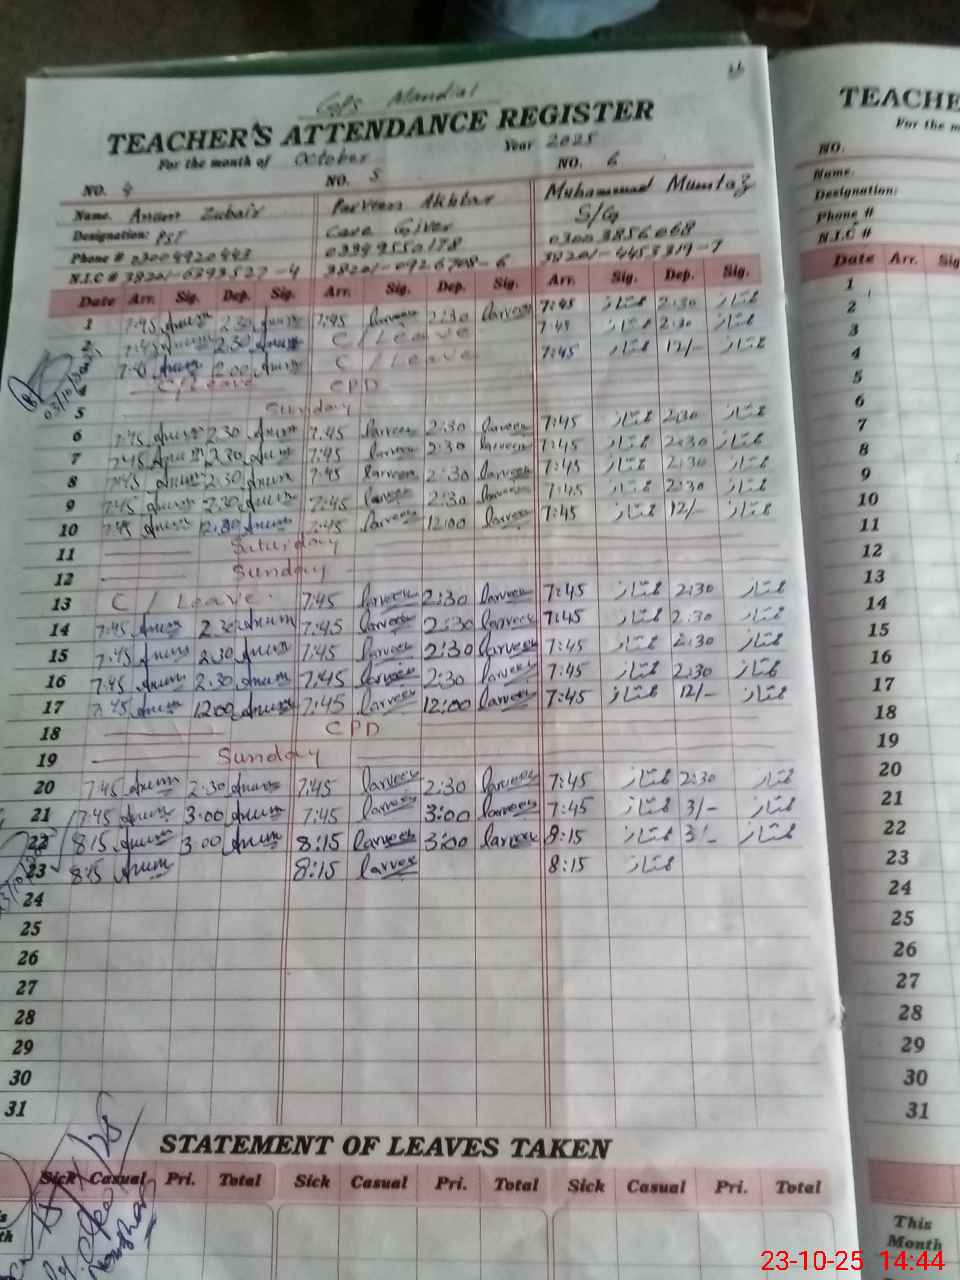 GPS Mandial
TEACHER'S ATTENDANCE REGISTER
For the month of October Year 2025
NO. 4 NO. 5 NO. 6
Name. Zubair Parveen Akhtar Muhammad Mumtaz
Designation: PST Care Giver S/G
Phone # 03004920443 03349550178 03003856068
N.I.C # 38201-0926708-6 38201-4453319-7
Date Arr. Sig. Dep. Sig. Arr. Sig. Dep. Sig. Arr. Sig. Dep. Sig.
1 7:45 Anum 2:30 Anum 7:45 Parveen 2:30 Parveen 7:45 ممتاز 2:30 ممتاز
2 7:45 Anum 2:30 Anum C/Leave 7:45 ممتاز 2:30 ممتاز
Anum Anum C/Leave 7:45 ممتاز 12/- ممتاز
4 C/Leave CPD
5 Sunday
6 7:45 Anum 2:30 Anum 7:45 Parveen 2:30 Parveen 7:45 ممتاز 2:30 ممتاز
7 7:45 Anum 2:30 Anum 7:45 Parveen 2:30 Parveen 7:45 ممتاز 2:30 ممتاز
8 7:45 Anum 2:30 Anum 7:45 Parveen 2:30 Parveen 7:45 ممتاز 2:30 ممتاز
9 7:45 Anum 2:30 Anum 7:45 Parveen 2:30 Parveen 7:45 ممتاز 2:30 ممتاز
10 7:45 Anum Anum 7:45 Parveen 12:00 Parveen 7:45 ممتاز 12/- ممتاز
11 Saturday
12 Sunday
13 C/Leave 7:45 Parveen 2:30 Parveen 7:45 ممتاز 2:30 ممتاز
14 7:45 Anum 2:30 Anum 7:45 Parveen 2:30 Parveen 7:45 ممتاز 2:30 ممتاز
15 7:45 Anum 2:30 Anum 7:45 Parveen 2:30 Parveen 7:45 ممتاز 2:30 ممتاز
16 7:45 Anum 2:30 Anum 7:45 Parveen 2:30 Parveen 7:45 ممتاز 2:30 ممتاز
17 7:45 Anum 12:00 Anum 7:45 Parveen 12:00 Parveen 7:45 ممتاز 12/- ممتاز
18 CPD
19 Sunday
20 7:45 Anum 2:30 Anum 7:45 Parveen 2:30 Parveen 7:45 ممتاز 2:30 ممتاز
21 7:45 Anum 3:00 Anum 7:45 Parveen 3:00 Parveen 7:45 ممتاز 3/- ممتاز
22 8:15 Anum 3:00 Anum 8:15 Parveen 3:00 Parveen 8:15 ممتاز 3/- ممتاز
23 8:15 Anum 8:15 Parveen 8:15 ممتاز
24
25
26
27
28
29
30
31
STATEMENT OF LEAVES TAKEN
Sick Casual Pri. Total Sick Casual Pri. Total Sick Casual Pri. Total
03/10/2025
TEACHE
For the m
NO.
Name.
Designation:
Phone #
N.I.C #
Date Arr. Sig
1
2
3
4
5
6
7
8
9
10
11
12
13
14
15
16
17
18
19
20
21
22
23
24
25
26
27
28
29
30
31
This
Month
23-10-25 14:44